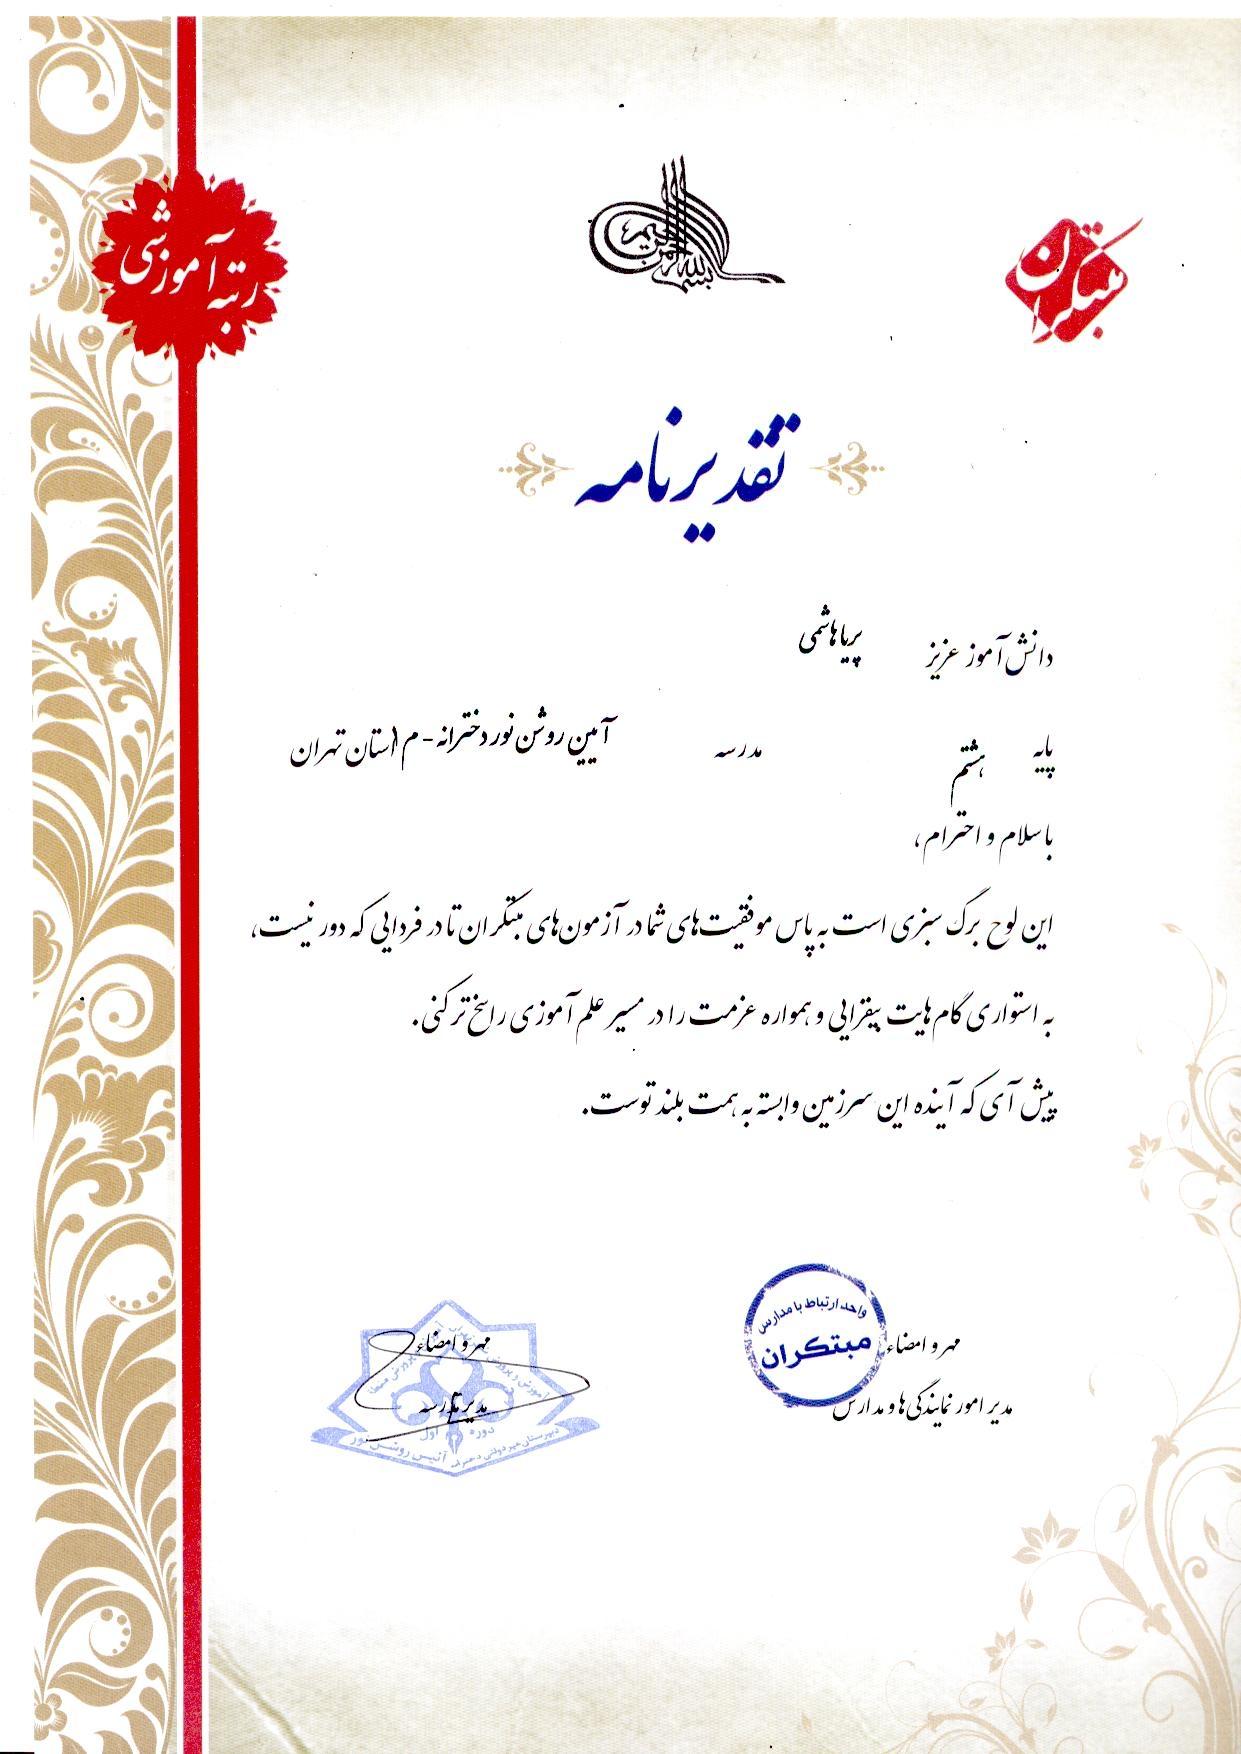 بسم الله الرحمن الرحیم
مبتکران
رتبه آموزشی
تقدیرنامه
دانش‌آموز عزیز پریا هاشمی
پایه هشتم مدرسه آیین روشن نور دخترانه - م استان تهران
با سلام و احترام،
این لوح برگ سبزی است به پاس موفقیت‌های شما در آزمون‌های مبتکران تا در فردایی که دور نیست،
به استواری گام‌هایت بیفزایی و همواره عزمت را در مسیر علم آموزی راسخ‌تر کنی.
پیش آی که آینده این سرزمین وابسته به همت بلند توست.
واحد ارتباط با مدارس
مبتکران
مهر و امضاء
مدیر امور نمایندگی‌ها و مدارس
مهر و امضاء
مدیر مدرسه
دوره اول
دبیرستان غیر دولتی دخترانه آئین روشن نور